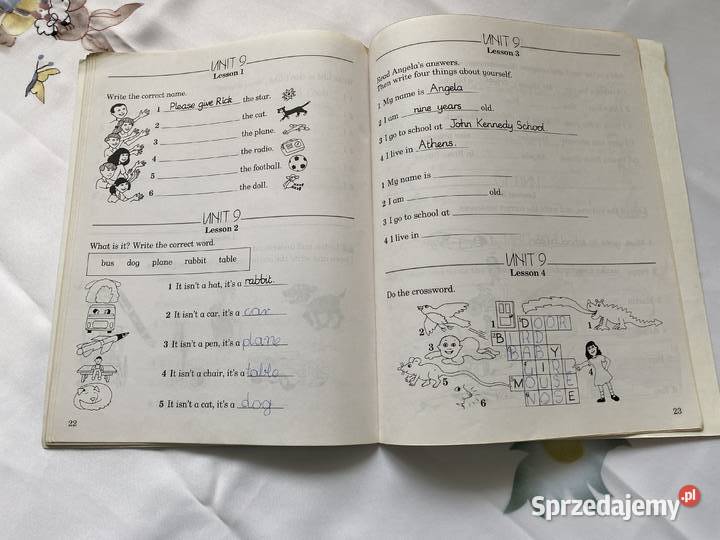 UNIT 9
Lesson 1
Write the correct name.
1 Please give Rick the star.
2 the cat.
3 the plane.
4 the radio.
5 the football.
6 the doll.
UNIT 9
Lesson 2
What is it? Write the correct word.
bus dog plane rabbit table
1 It isn't a hat, it's a rabbit.
2 It isn't a car, it's a car
3 It isn't a pen, it's a plane
4 It isn't a chair, it's a table
5 It isn't a cat, it's a dog
22
UNIT 9
Lesson 3
Read Angela's answers.
Then write four things about yourself.
1 My name is Angela
2 I am nine years old.
3 I go to school at John Kennedy School
4 I live in Athens.
1 My name is
2 I am old.
3 I go to school at
4 I live in
UNIT 9
Lesson 4
Do the crossword.
1 DOOR 1
2 BIRD
3 BABY
4
5 MOUSE
6 NOSE
23
Sprzedajemy.pl